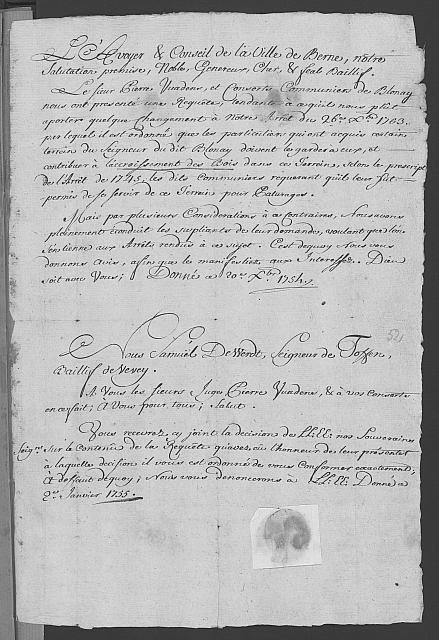 L'Avoyer & Conseil de la Ville de Berne, notre
Salutation premise, Noble, Genereux, Cher, & feal Baillif.
Le sieur Pierre Vuadens, et Consorts Communiers de Blonay
nous ont presenté une Requête, tendante a ce qu'il nous plût
aporter quelque Changement à Notre Arrêt du 26e Xbre 1743.
par lequel il est ordonné que les particuliers qui ont acquis certain
terrein du Seigneur du dit Blonay doivent les garder a eux, et
contribuer à l'accroissement des Bois dans ce Terrein, selon le prescript
de l'Arrêt de 1745. les dits Communiers requerant qu'il leur fut
permis de se servir de ce Terrein pour Paturages.
Mais par plusieurs Considerations à ce contraires, Nous avons
pleinement éconduit les supliants de leur demande, voulant que l'on
s'en tienne aux Arrêts rendus à ce sujet. C'est dequoy Nous vous
donnons Avis, afin que le manifestiez aux Interessés. Dieu
soit avec Vous; Donné ce 20e Xbre 1754.
52
Nous Samuel De Werdt, Seigneur de Toffen,
Baillif de Vevey.
A Vous les sieurs Juge Pierre Vuadens, & à vos Consorts
en ce fait; à Vous pour tous; Salut.
Vous recevrez cy joint la decision de LLEE: nos Souverains
Seigrs sur le Contenu de la Requête qu'avez eu l'honneur de leur présenter
à laquelle decision il vous est ordonné de vous Conformer exactement,
à deffaut dequoy; Nous vous denoncerons à LLEE: Donné ce
2e Janvier 1755.